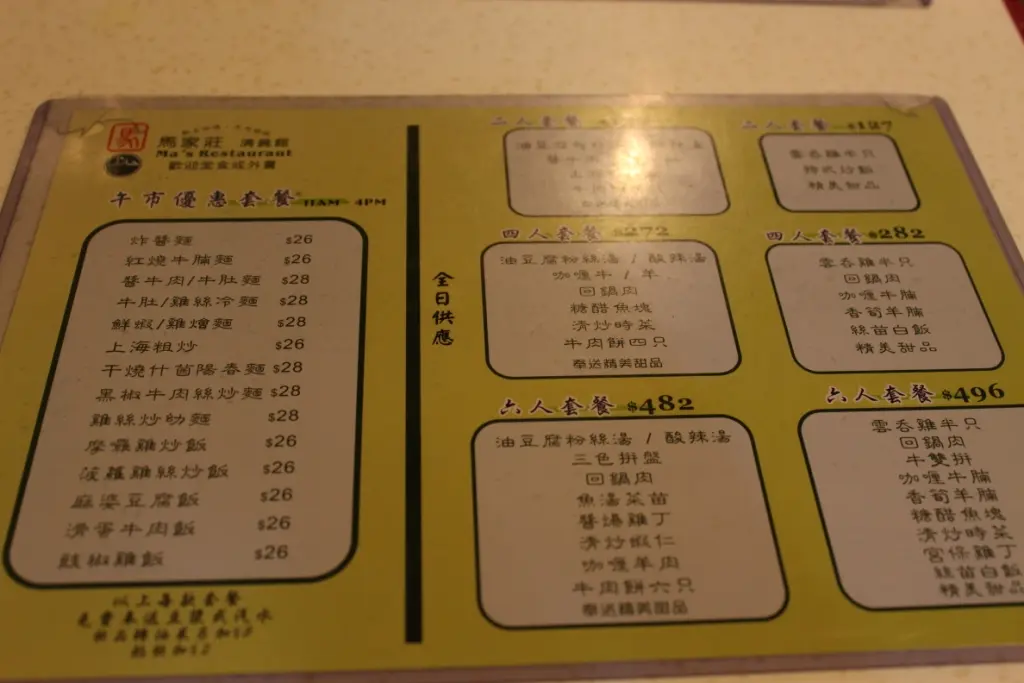 馬家莊 清真館
Ma's Restaurant
歡迎堂食或外賣
午市優惠套餐 11AM - 4PM
炸醬麵 $26
紅燒牛腩麵 $26
醬牛肉/牛肚麵 $28
牛肚/雞絲冷麵 $28
鮮蝦/雞燴麵 $28
上海粗炒 $26
干燒什菌陽春麵 $28
黑椒牛肉絲炒麵 $28
雞絲炒肋麵 $28
摩囉雞炒飯 $26
菠蘿雞絲炒飯 $26
麻婆豆腐飯 $26
滑蛋牛肉飯 $26
豉椒雞飯 $26
以上每款套餐
免費奉送豆漿或汽水
全日供應
二人套餐
四人套餐 $272
油豆腐粉絲湯 / 酸辣湯
咖喱牛 / 羊
回鍋肉
糖醋魚塊
清炒時菜
牛肉餅四只
奉送精美甜品
六人套餐 $482
油豆腐粉絲湯 / 酸辣湯
三色拼盤
回鍋肉
魚湯菜苗
醬爆雞丁
清炒蝦仁
咖喱羊肉
牛肉餅六只
奉送精美甜品
二人套餐 $127
雲吞雞半只
揚式炒飯
精美甜品
四人套餐 $282
雲吞雞半只
回鍋肉
咖喱牛腩
香荀羊腩
絲苗白飯
精美甜品
六人套餐 $496
雲吞雞半只
回鍋肉
牛雙拼
咖喱牛腩
香荀羊腩
糖醋魚塊
清炒時菜
宮保雞丁
絲苗白飯
精美甜品